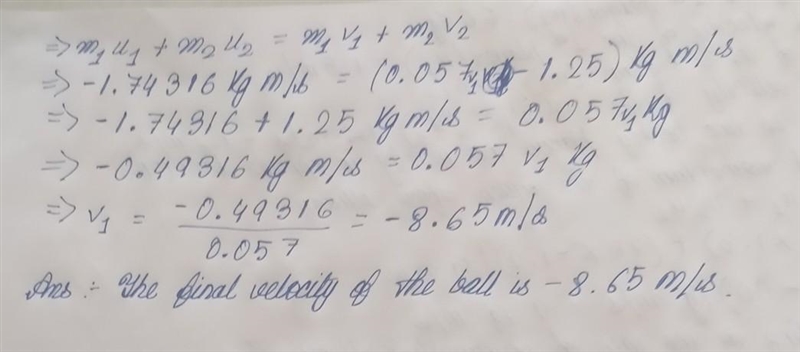 ⇒ m₁u₁ + m₂u₂ = m₁v₁ + m₂v₂
⇒ -1.74316 Kg m/s = (0.057v₁ - 1.25) Kg m/s
⇒ -1.74316 + 1.25 Kg m/s = 0.057v₁ Kg
⇒ -0.49316 Kg m/s = 0.057 v₁ Kg
⇒ v₁ = -0.49316 / 0.057 = -8.65 m/s
Ans :- The final velocity of the ball is -8.65 m/s.